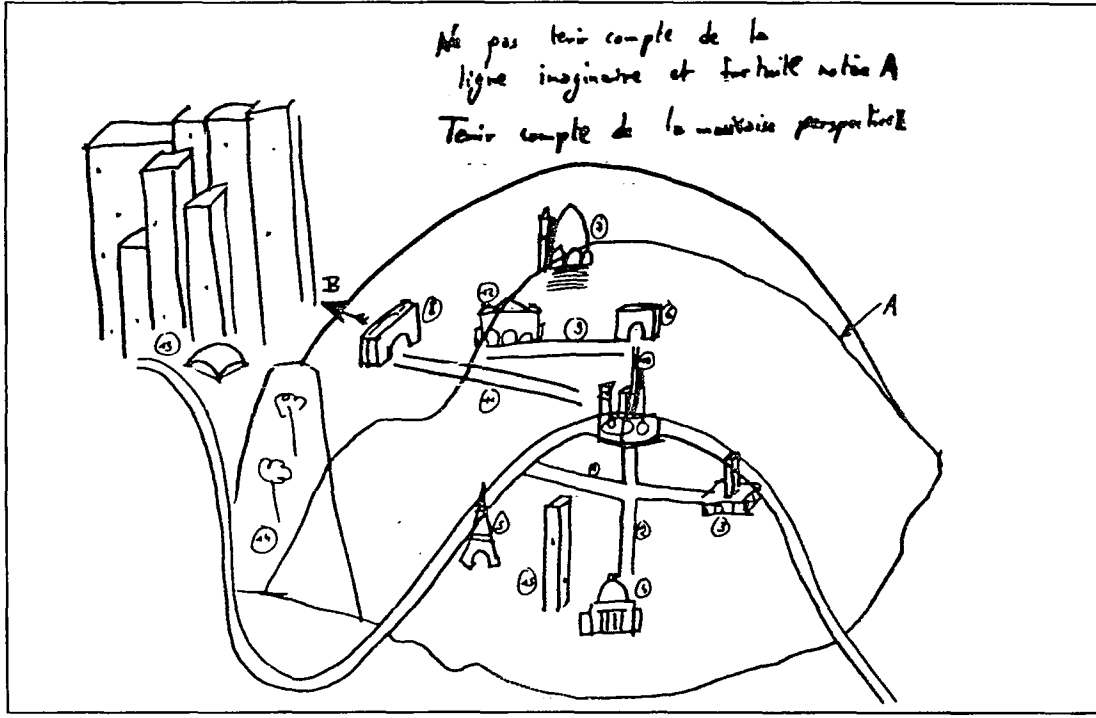 Ne pas tenir compte de la
ligne imaginaire et fortuite notée A
Tenir compte de la mauvaise perspective
7
B
8
12
6
9
A
10
11
13
14
5
15
2
3